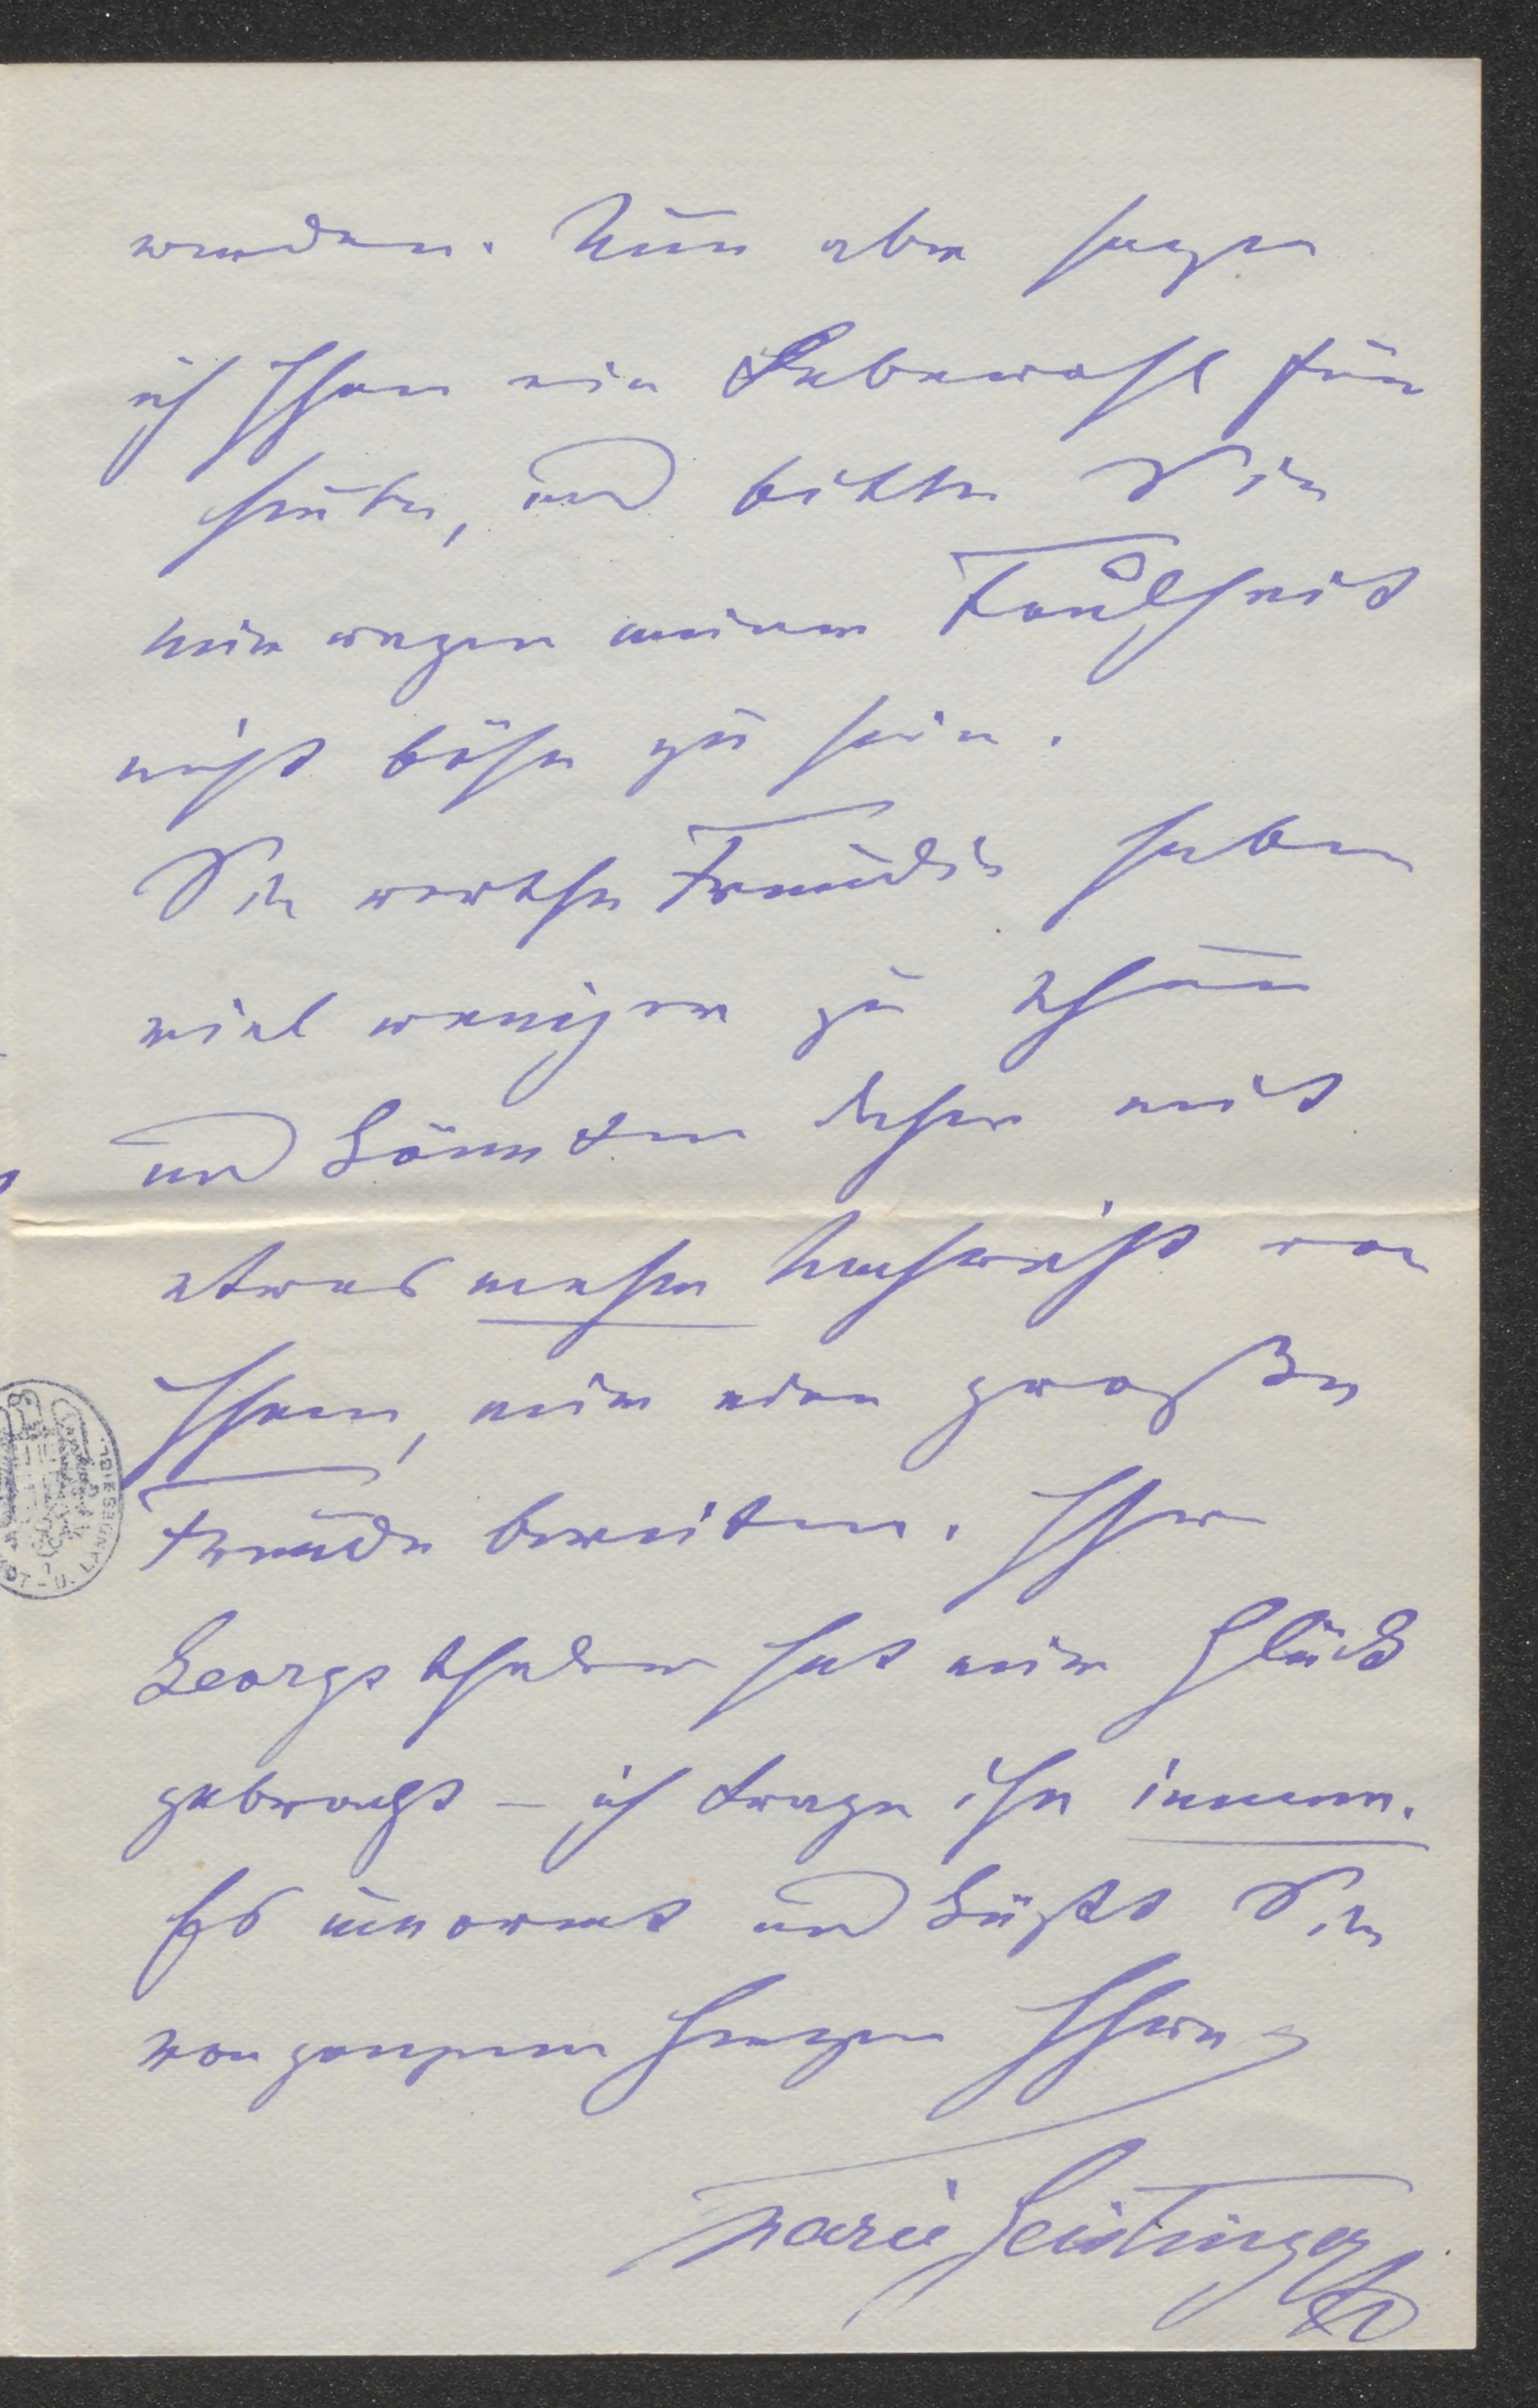 werden. Nun aber sagen
ich Ihnen ein Lebewohl für
heute, und bitte Sie
mir wegen meiner Faulheit
nicht böse zu sein.
Sie werthe Freundin haben
viel weniger zu thun
und könnten daher mit
etwas mehr Nachricht von
Ihnen, mir eine große
Freude bereiten. Ihr
Georgsthaler hat mir Glück
gebracht – ich trage ihn immer.
Es umarmt und küßt Sie
von ganzem Herzen Ihre
Marie Geistinger